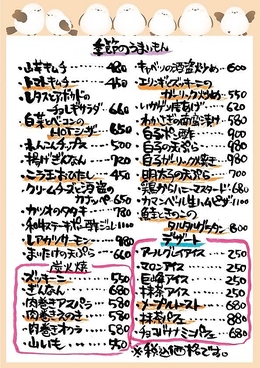 季節のうまいもん
山芋キムチ・・・480
トマトキムチ・・・450
レタスとアボカドの
チョレギサラダ・・660
白菜とベーコンの
HOTシーザー・・650
れんこんチップス・・500
揚げぎんなん・・720
ニラ玉おひたし・・450
クリームチーズと酒盗の
カナッペ・・650
カツオのタタキ・・780
和牛ステーキポン酢ジュレ1100
レアガリサーモン・・980
まいたけの天ぷら・・660
炭火焼
ズッキーニ・・・550
ぎんなん・・・680
肉巻きアスパラ・580
肉巻きえのき・・580
肉巻きオクラ・・580
山いも・・・550
キャベツの酒盗炒め・・600
ガーリック炒め・・550
いかゲソ唐あげ・・620
わかさぎの南蛮漬け・580
白子ポン酢・・・900
白子の天ぷら・・・980
白子ガーリック焼き・980
明太子の天ぷら・・700
鶏からハニーマスタード・680
カマンベール生ハムピザ・1100
鮭ときのこの
タルタルグラタン・800
デザート
アールグレイアイス・・250
マロンアイス・・・250
巨峰アイス・・・250
抹茶アイス・・・250
メープルトースト・・680
抹茶パフェ・・・880
チョコバナナミニパフェ・680
※税込価格です。